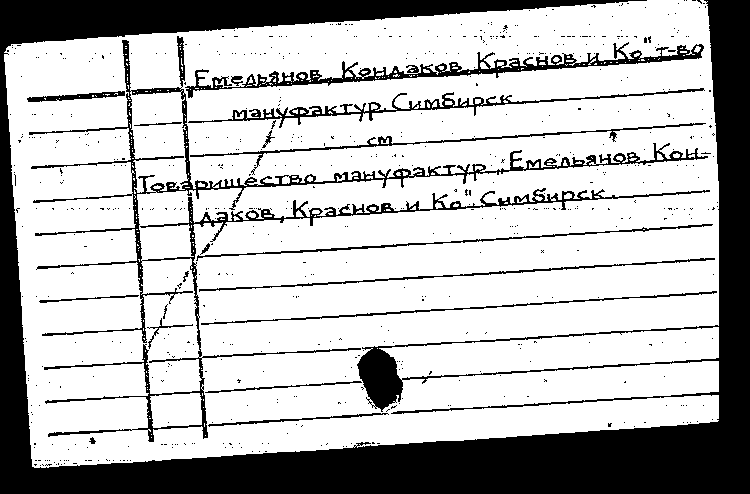 Емельянов, Кондаков, Краснов и Ко" т-во
мануфактур. Симбирск
см
Товарищество мануфактур „Емельянов, Кон-
даков, Краснов и Ко". Симбирск.